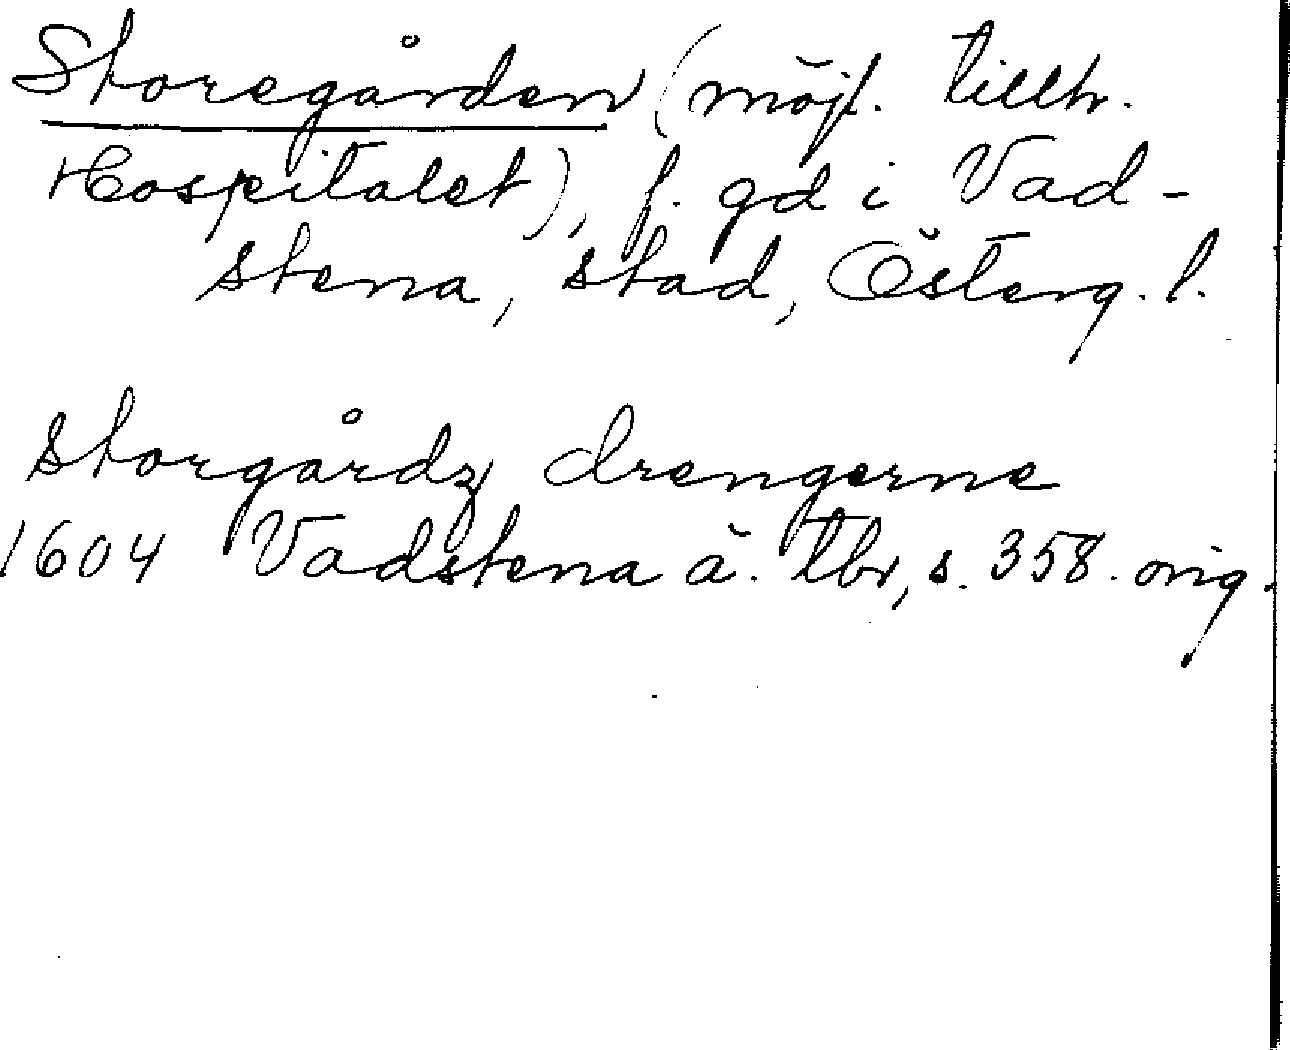 Storegården (möjl. tillh.
Hospitalet), f. gd i Vad-
stena, stad, Österg. l.
storgårdz drengerne
1604 Vadstena ä. tbr, s. 358. orig.